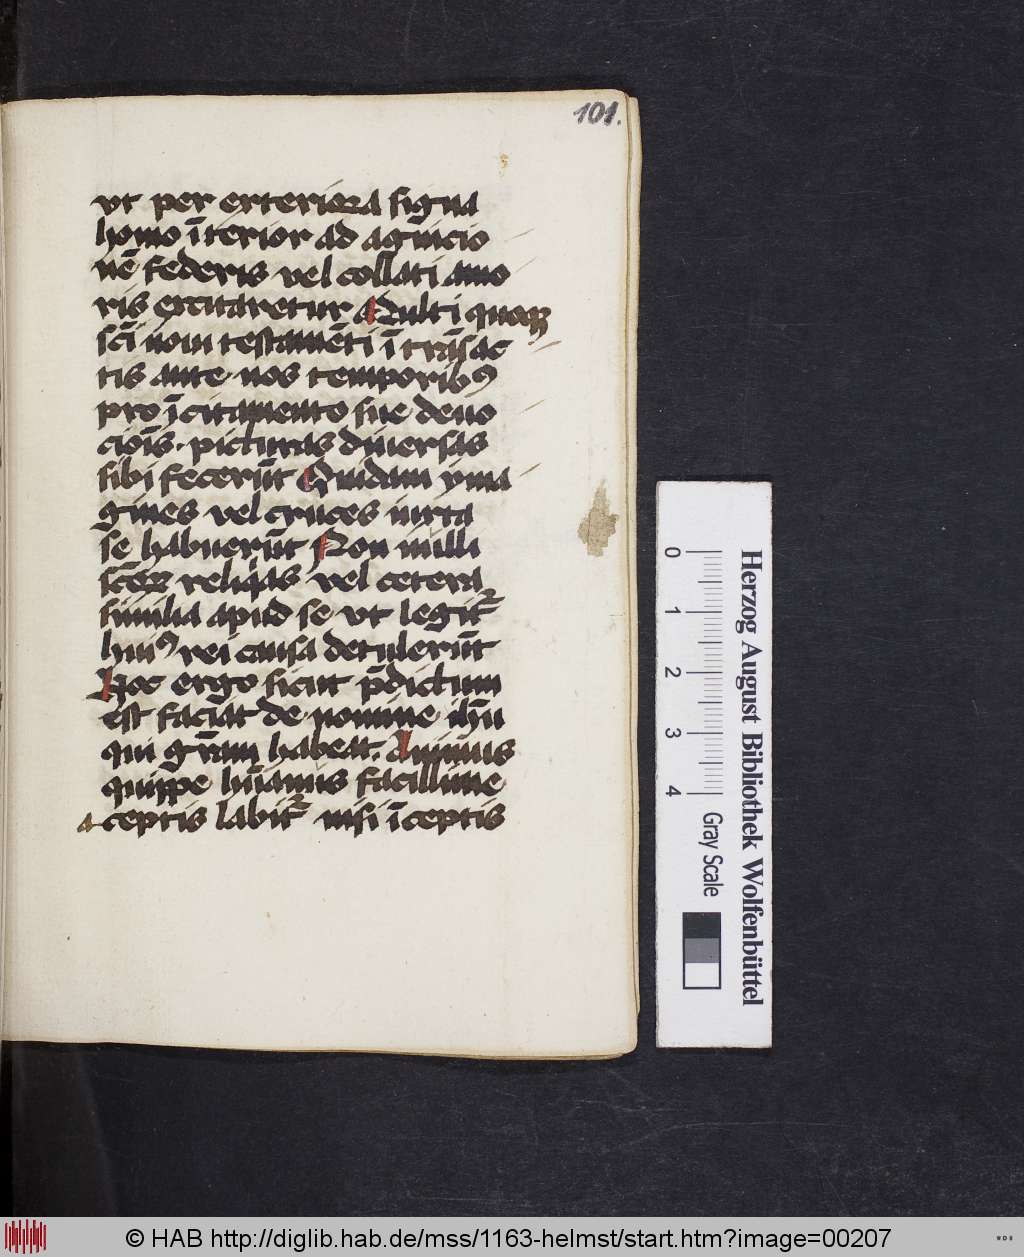 101.
vt per exteriora signa
homo īterior ad agnicio
nē federis vel collati amo
ris excitaretur Multi quoqꝫ
sc̄i noui testamēti ī trāsac
tis ante nos temporibꝰ
pro īcitamento sue deuo
ciōis · picturas diuersas
sibi fecerūt Quidam yma
gines vel cruces iuxta
se habuerūt Non nulli
sc̄oꝝ reliq̄as vel cetera
similia apud se vt legit᷑
huiꝰ rei causa detulerūt
Hoc ergo sicut p̄dictum
est faciāt de nomine ih̄u
qui gr̄am habent. Animus
quippe hūanus facillime
a ceptis labit᷑ nisi īceptis
0 1 2 3 4
Gray Scale
Herzog August Bibliothek Wolfenbüttel
© HAB http://diglib.hab.de/mss/1163-helmst/start.htm?image=00207